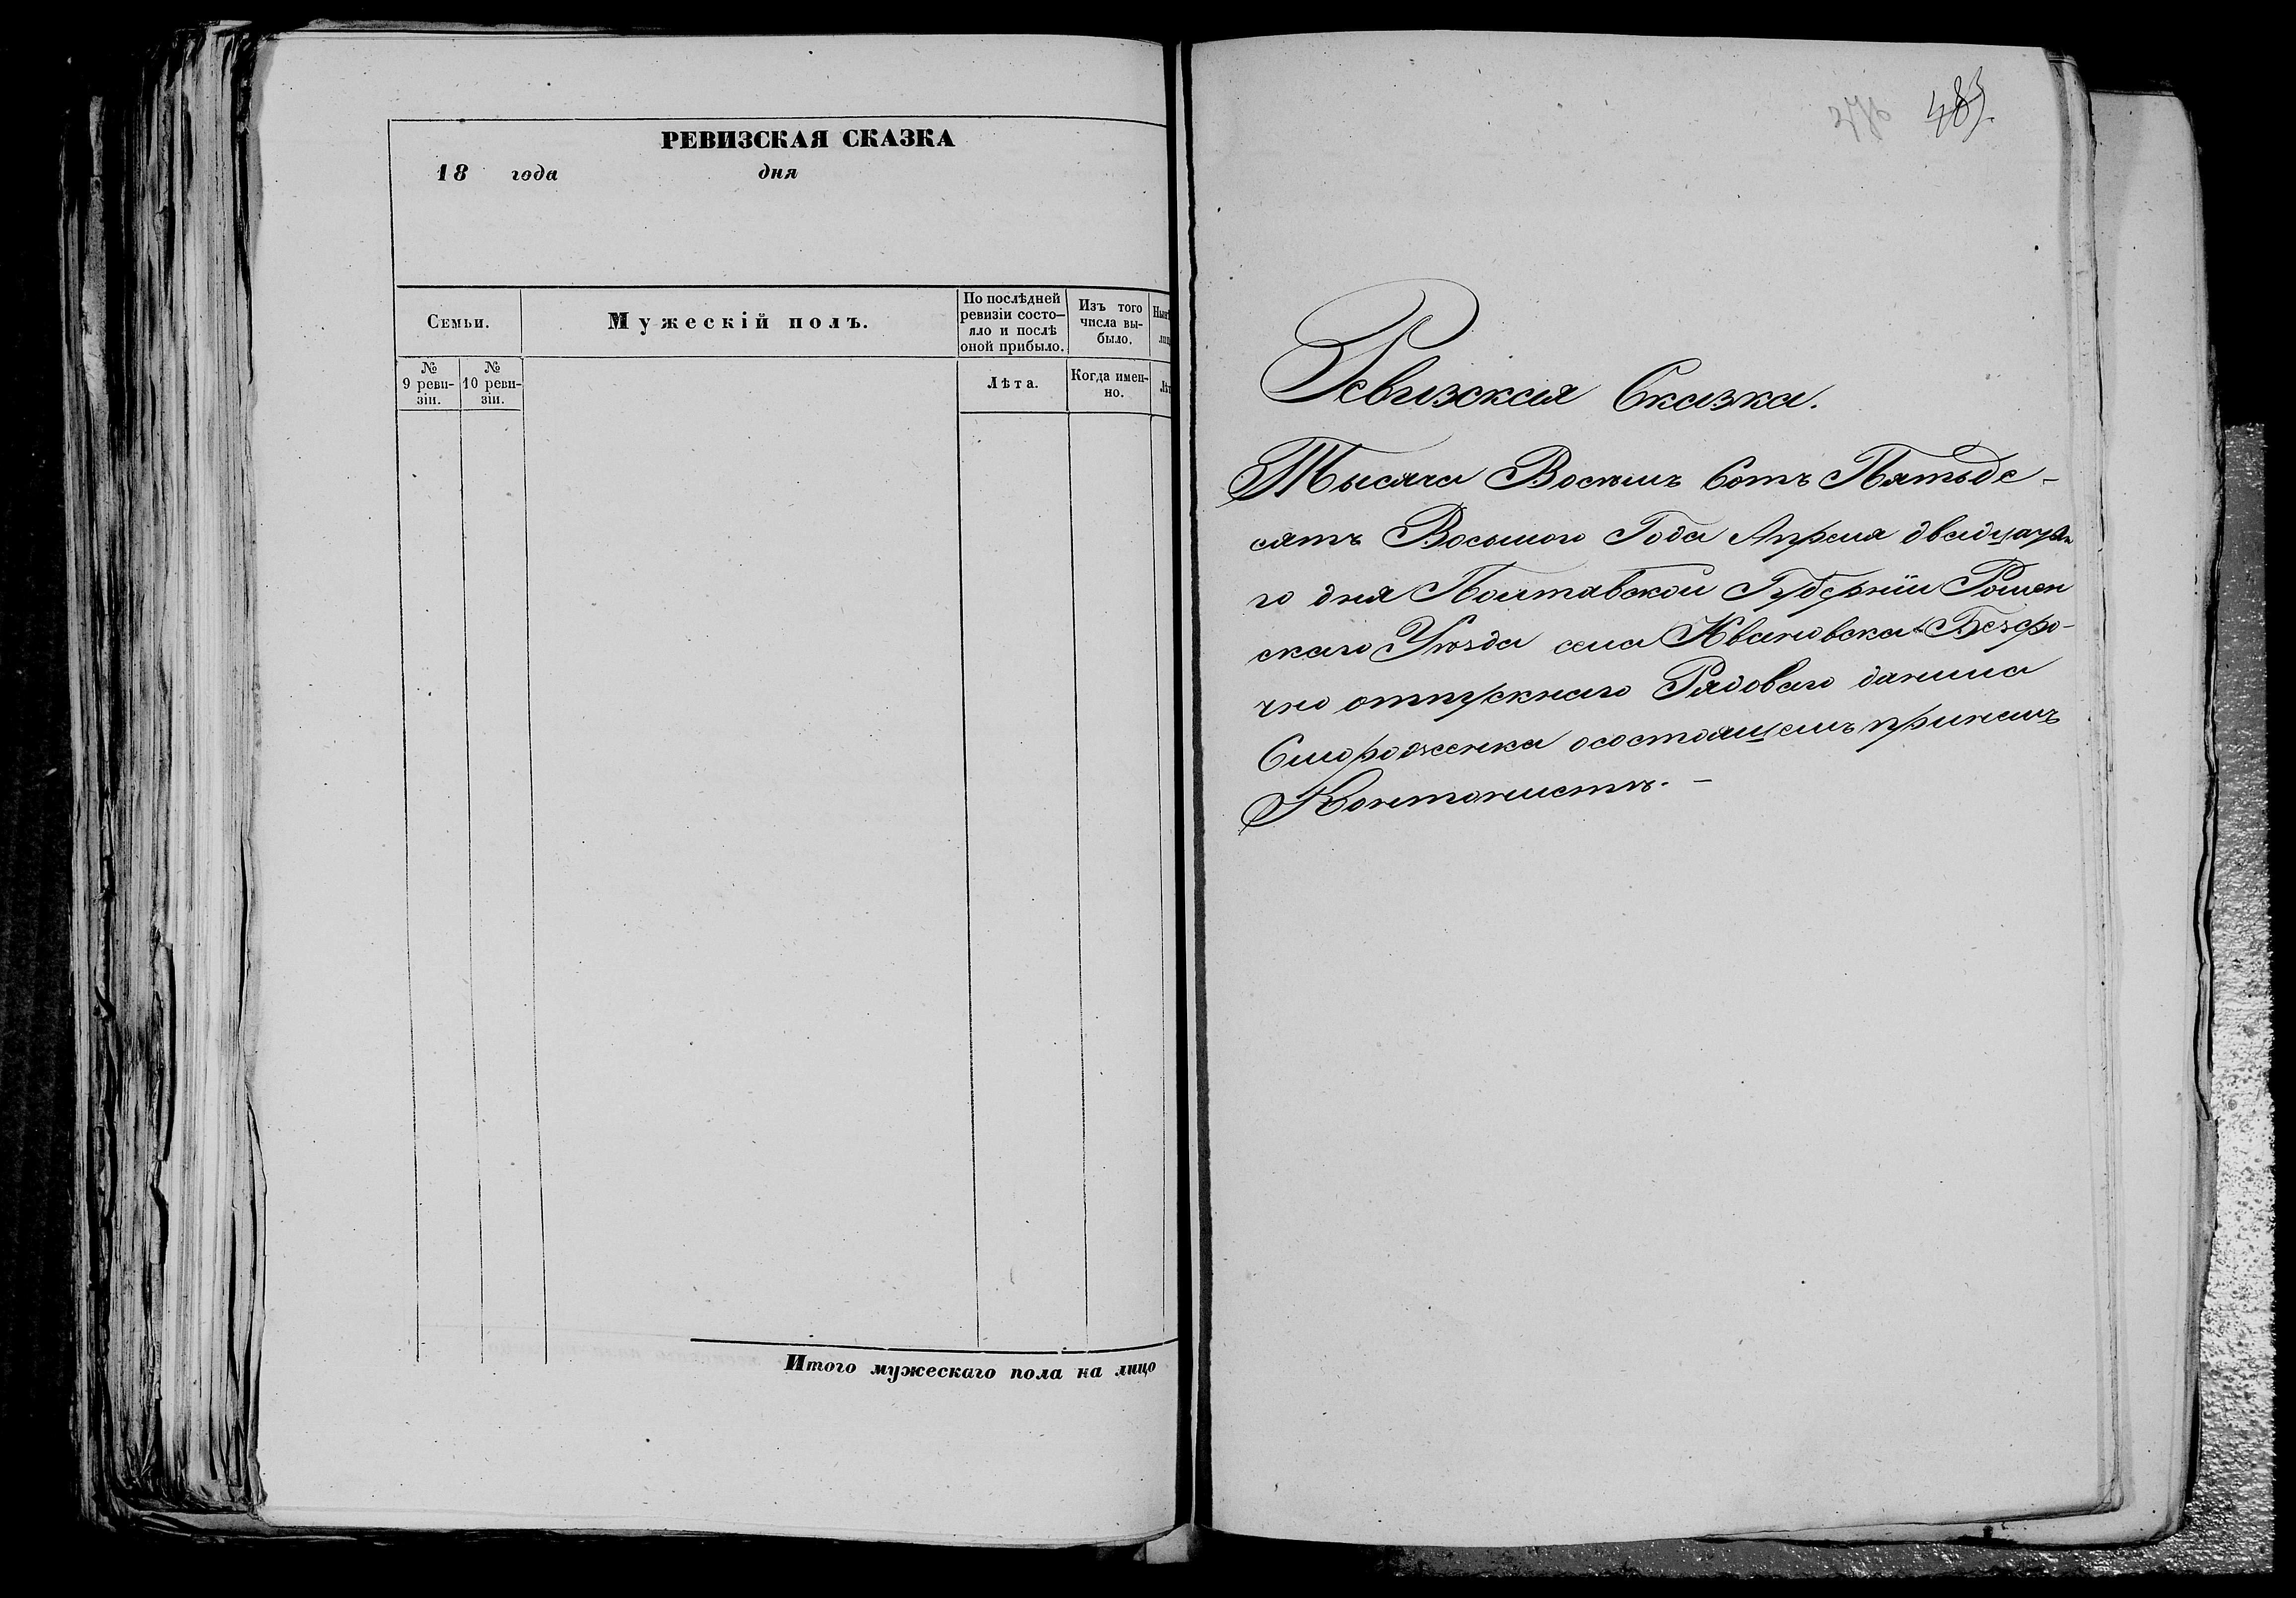 РЕВИЗСКАЯ СКАЗКА
18 года дня
Семьи.
Мужескій полъ.
По послѣдней
ревизіи состо-
яло и послѣ
оной прибыло.
Изъ того
числа вы-
было.
№
9 реви-
зіи.
№
10 реви-
зіи.
Лѣта.
Когда имен-
но.
Итого мужескаго пола на лицо
483.
Ревизская Сказка.
Тысяча Восемь Сотъ Пятьде-
сятъ Восьмого Года Апреля двадцата
го дня Полтавской Губерніи Ромен
скаго Уѣзда села Безсро-
чно отпускнаго Рядоваго данила
Смородженка осостоящемъ принемъ
Контонистѣ. -